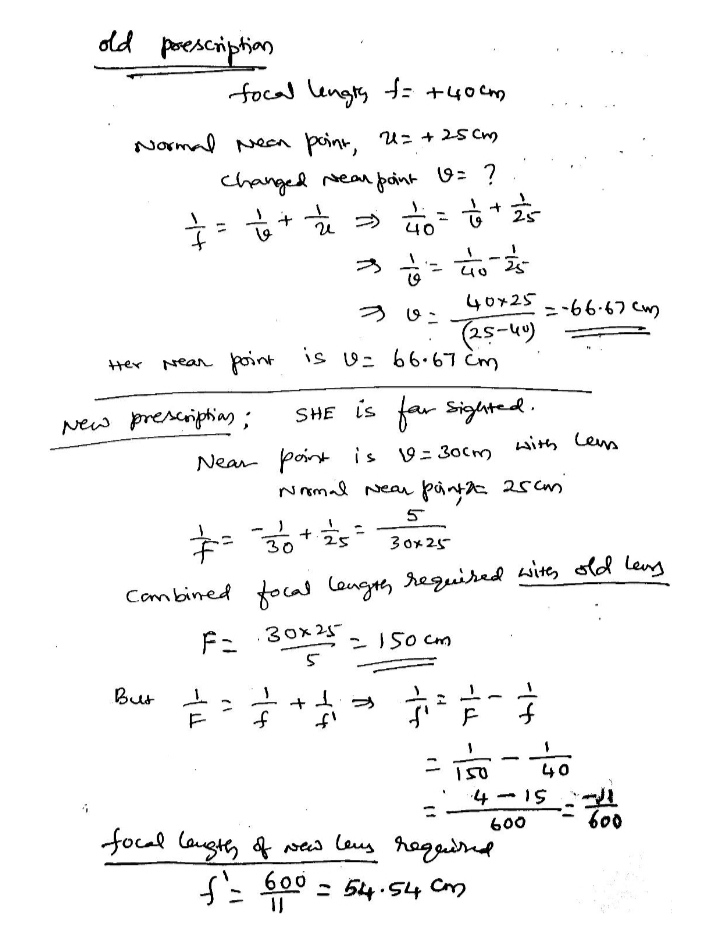 old prescription
focal length f = +40cm
Normal Near point, u = +25cm
Changed Near point v = ?
1/f = 1/v + 1/u ⇒ 1/40 = 1/v + 1/25
⇒ 1/v = 1/40 - 1/25
⇒ v = 40×25/(25-40) = -66.67 cm
Her Near point is v = 66.67 cm
New prescription; SHE is far sighted.
Near point is v = 30cm with lens
Normal Near point u = 25cm
1/F = -1/30 + 1/25 = 5/30×25
Combined focal length required with old lens
F = 30×25/5 = 150 cm
But 1/F = 1/f + 1/f' ⇒ 1/f' = 1/F - 1/f
= 1/150 - 1/40
= 4 - 15/600 = -11/600
focal length of new lens required
f' = 600/11 = 54.54 cm